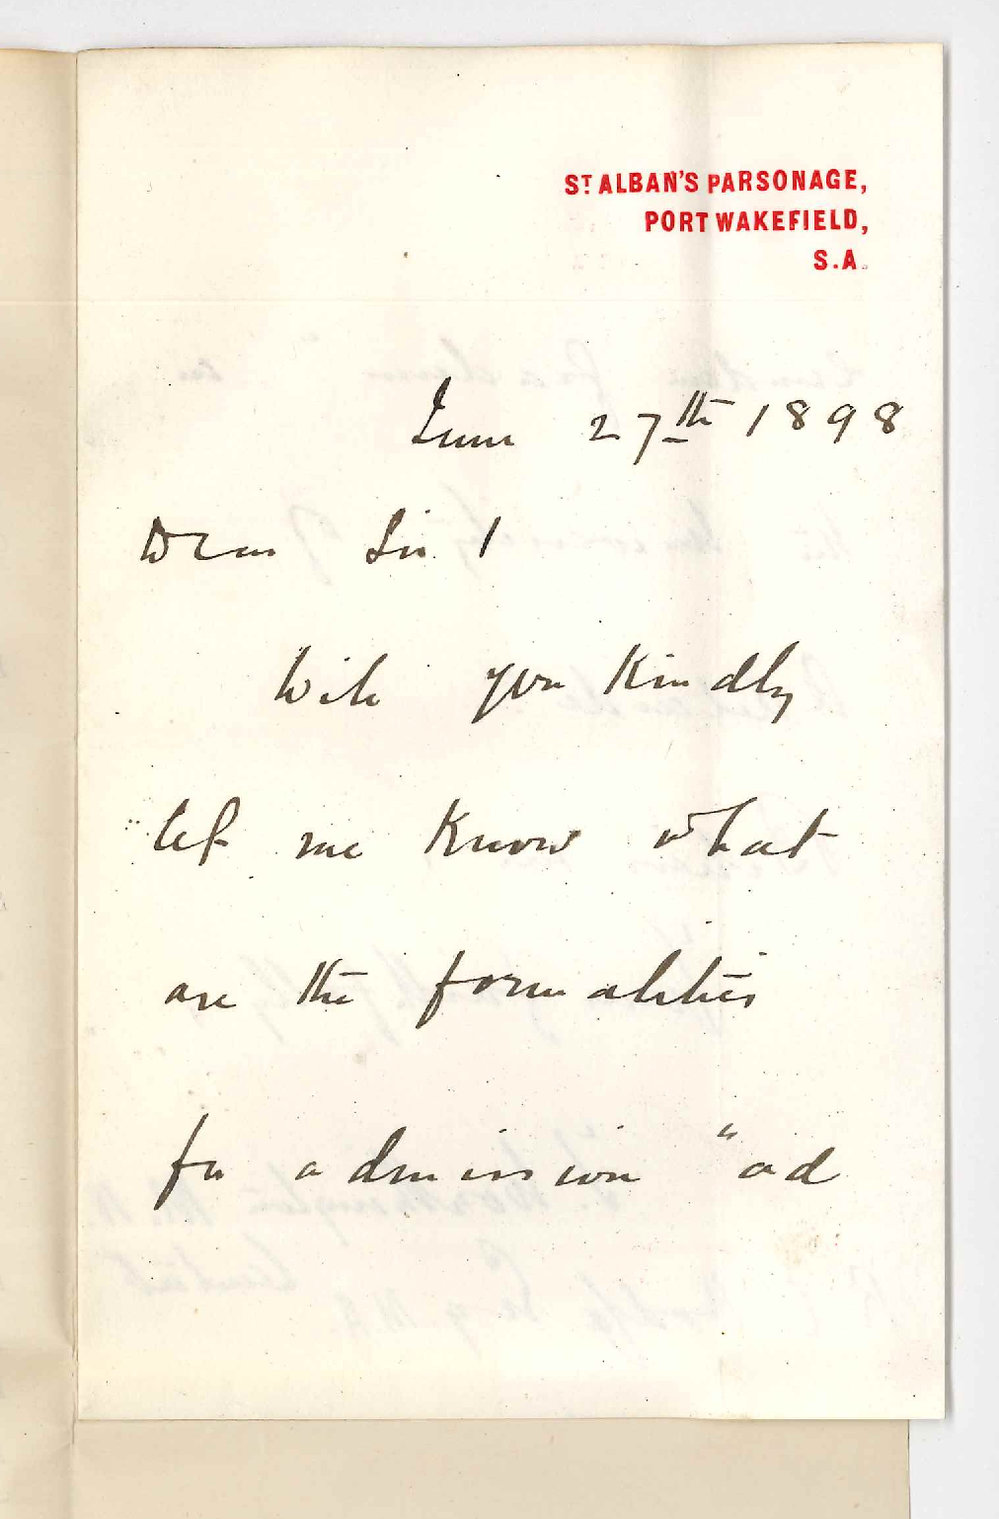 ST ALBAN'S PARSONAGE,
PORT WAKEFIELD,
S.A.
June 27th 1898
Dear Sir /
Will you kindly
let me know what
are the formalities
for admission "ad